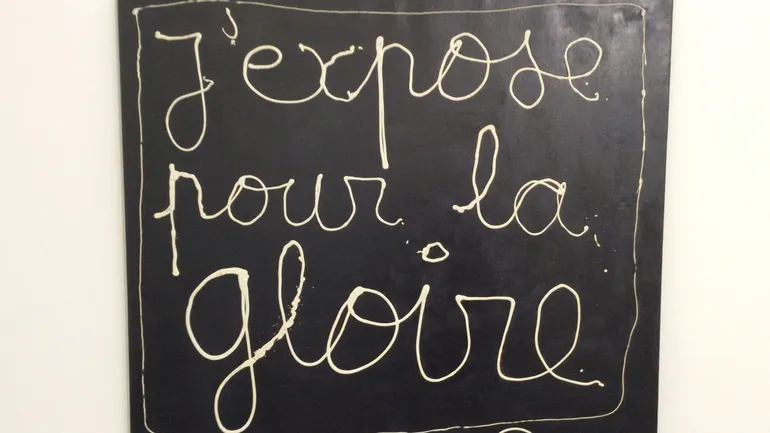 j'expose
pour la
gloire